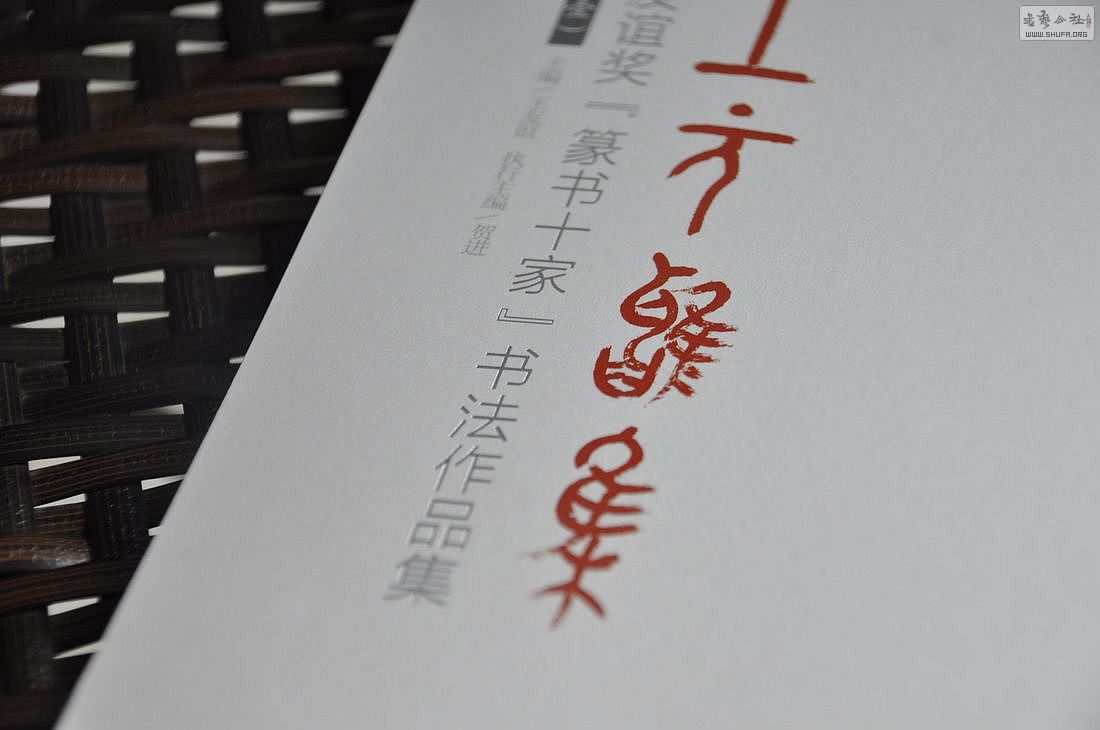 方
集
友谊奖『篆书十家』书法作品集
主编/王友谊 执行主编/贺进
书艺公社
WWW.SHUFA.ORG